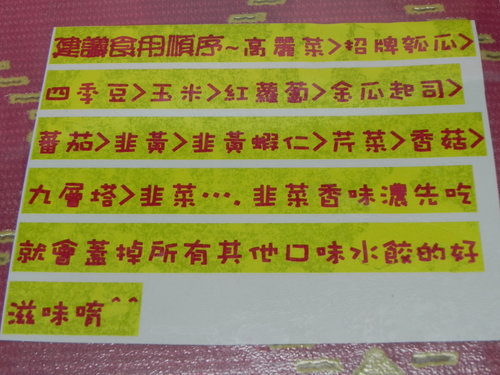 建議食用順序~高麗菜>招牌瓠瓜>
四季豆>玉米>紅蘿蔔>金瓜起司>
蕃茄>韭黃>韭黃蝦仁>芹菜>香菇>
九層塔>韭菜….韭菜香味濃先吃
就會蓋掉所有其他口味水餃的好
滋味唷^^